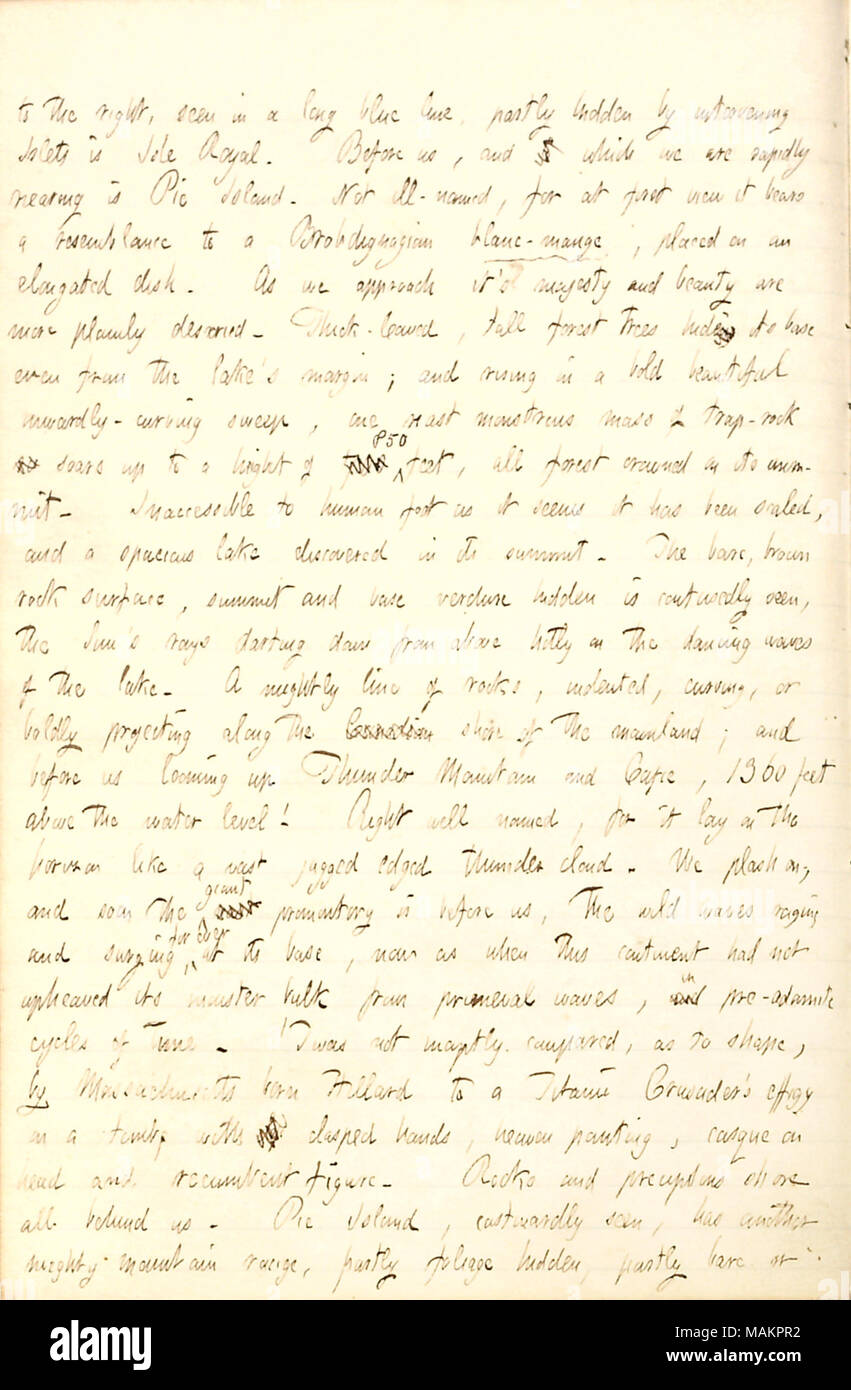 to the right, seen in a long blue line, partly hidden by intervening
Islets is Isle Royal. Before us, and which we are rapidly
nearing is Pie Island. Not ill-named, for at first view it bears
a resemblance to a Brobdignagian blanc-mange, placed on an
elongated dish. As we approach it's majesty and beauty are
more plainly descried. Thick-leaved, tall forest trees hide its base
even from the lake's margin; and rising in a bold beautiful
inwardly-curving sweep, one vast monstrous mass of trap-rock
soars up to a hight of 850 feet, all forest crowned on its sum-
mit. Inaccessible to human foot as it seems it has been scaled,
and a spacious lake discovered in its summit. The bare, brown
rock surface, summit and base verdure hidden is confusedly seen,
the Sun's rays darting down from above hotly on the dancing waves
of the lake. A mightly line of rocks, indented, curving, or
boldly projecting along the Canadian shore of the mainland; and
before us looming up Thunder Mountain and Cape, 1360 feet
above the water level! Right well named, for it lay on the
horizon like a vast jagged edged thunder cloud. We plash on,
and soon the giant promontory is before us, the wild waves raging
and surging, for ever at its base, now as when this continent had not
upheaved its monster bulk from primeval waves, in pre-adamite
cycles of Time. 'Twas not inaptly compared, as to shape,
by Massachusetts born Hillard to a Titanic Crusader's effigy
on a tomb, with clasped hands, heaven pointing, casque on
head and recumbent figure. Rocks and precipitous shore
all behind us. Pie Island, eastwardly seen, has another
mighty mountain range, partly foliage hidden, partly bare or
alamy
Image ID: MAKPR2
www.alamy.com